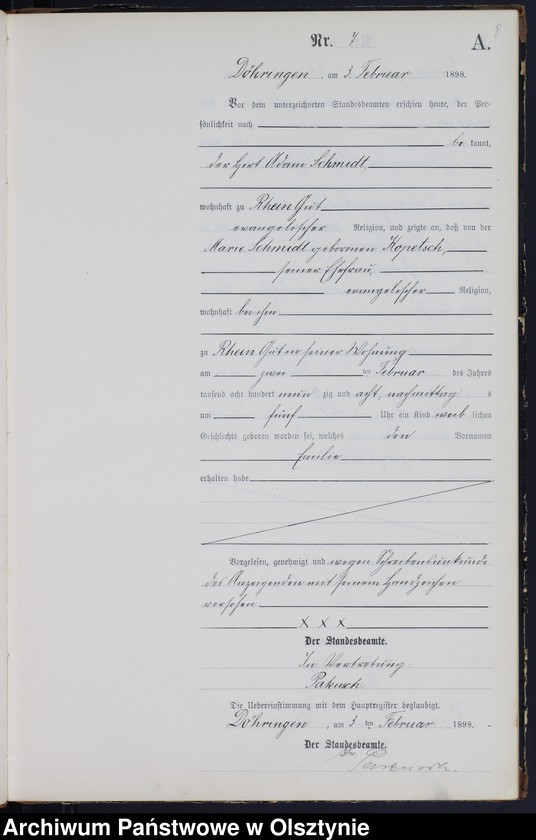 8
Nr. 7
A.
Döhringen, am 3. Februar 1898.
Vor dem unterzeichneten Standesbeamten erschien heute, der Per-
sönlichkeit nach
be kannt,
der Hert Adam Schmidt,
wohnhaft zu Rhein Gut
evangelischer Religion, und zeigte an, daß von der
Marie Schmidt geborenen Kopetsch,
seiner Ehefrau,
evangelischer Religion,
wohnhaft bei ihm
zu Rhein Gut in seiner Wohnung
am zwei ten Februar des Jahres
tausend acht hundert neun zig und acht, nachmittag s
um fünf Uhr ein Kind weib lichen
Geschlechts geboren worden sei, welches den Vornamen
Emilie
erhalten habe
Vorgelesen, genehmigt und wegen Schreibensunkunde
des Anzeigenden mit seinem Handzeichen
versehen
X X X
Der Standesbeamte.
In Vertretung
Die Uebereinstimmung mit dem Hauptregister beglaubigt.
Döhringen, am 3 ten Februar 1898.
Der Standesbeamte.
Archiwum Państwowe w Olsztynie